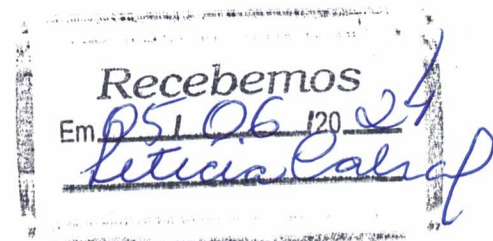 Recebemos
Em 05 / 06 / 20 24
Leticia Cabral